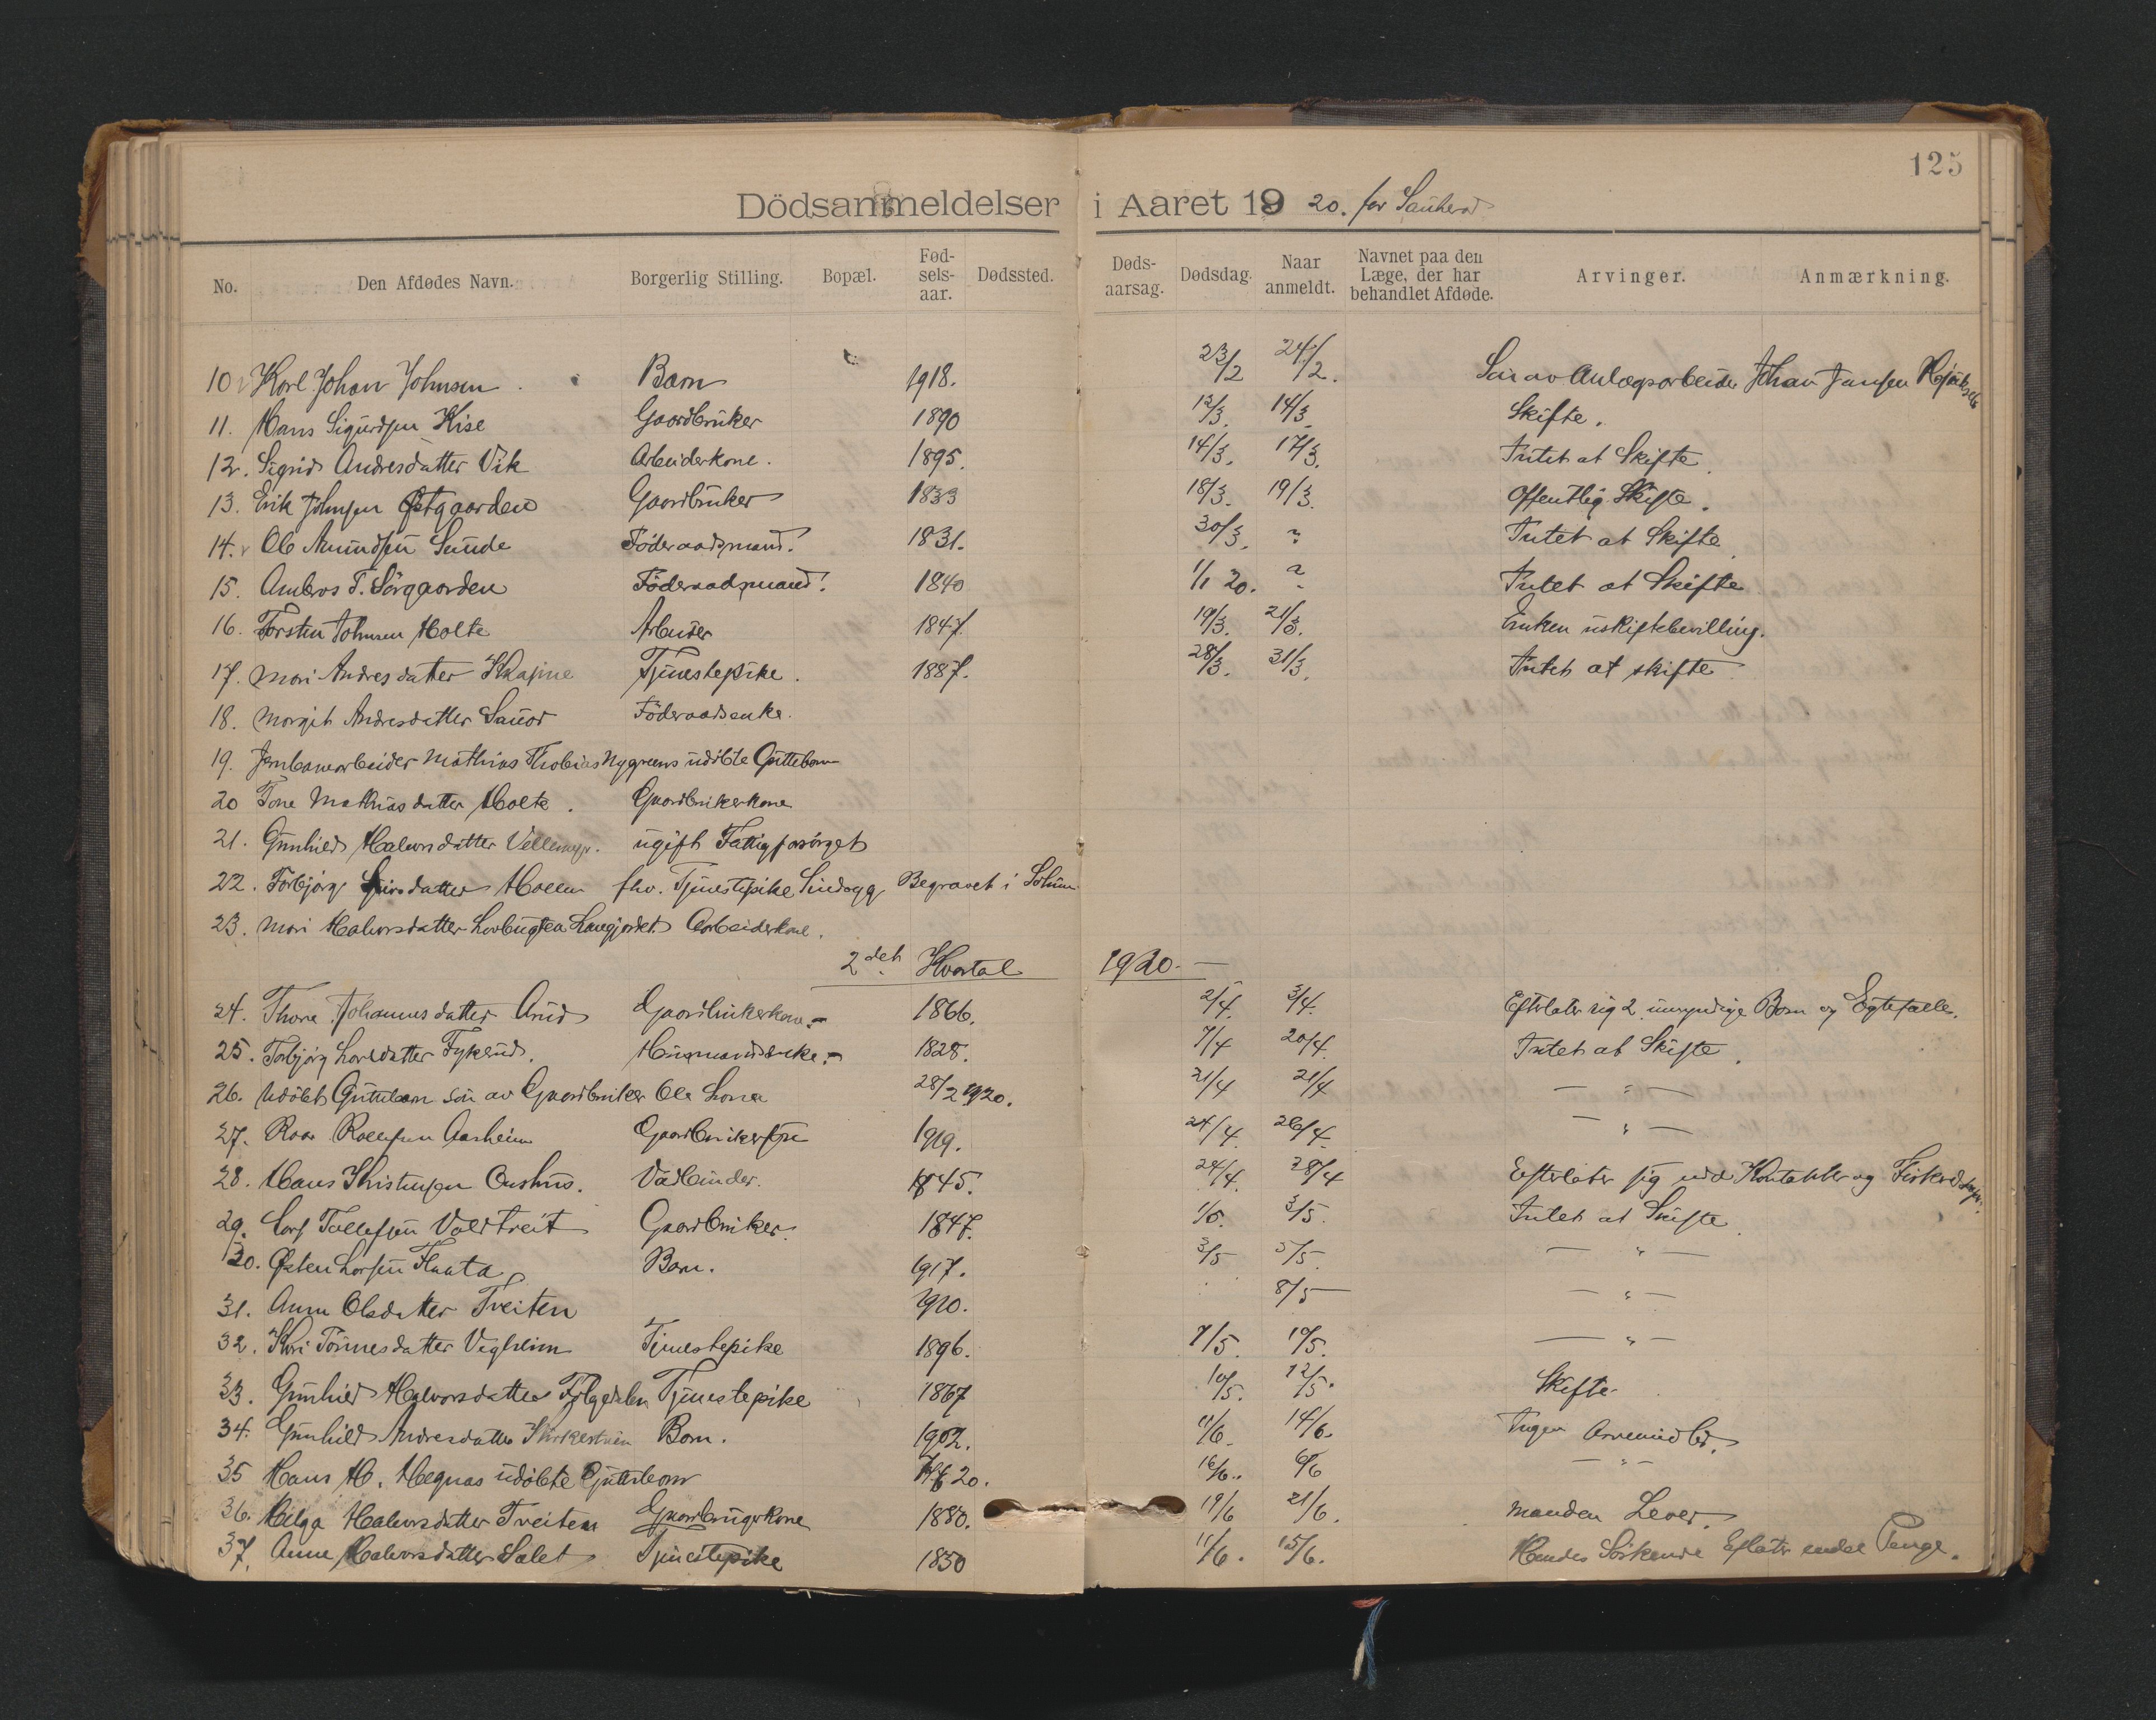 125
Dödsanmeldelser i Aaret 1920. for Sauherad
No. Den Afdødes Navn. Borgerlig Stilling. Bopæl. Fød-sels-aar. Dødssted. Døds-aarsag. Dødsdag. Naar anmeldt. Navnet paa den Læge, der har behandlet Afdøde. Arvinger. Anmærkning.
10 Karl Johan Johnsen Barn 1918. 23/2 24/2. Søn av Anlægsarbeider Johan Jansen
11. Hans Sigurdsen Kise Gaardbruker 1890 12/3. 14/3. Skifte.
12. Sigrid Andresdatter Vik Arbeiderkone. 1895. 14/3. 17/3. Intet at Skifte.
13. Erik Johnsen Østgaarden Gaardbruker 1833 18/3. 19/3. Offentlig Skifte.
14. Ole Amundsen Sunde Föderaadsmand. 1831. 30/3. " Intet at Skifte.
15. Ambros T. Sörgaarden Föderaadsmand. 1840 1/1 20. " Intet at Skifte
16. Torsten Johnsen Holte Arbeider 1847. 19/3. 21/3. Enken uskiftebevilling.
17. Mari Andresdatter Tjenestepike. 1887. 28/3. 31/3. Intet at skifte
18. Margit Andresdatter Sauar Föderaadsenke.
19. Jernbanearbeider Mathias Thobias Nygreens udöbte Guttebarn
20 Tone Mathiasdatter Holte. Gaardbrukerkone
21. Gunhild Halvorsdatter ugift Fattigforsörget
22. Torbjörg datter Moen fhv. Tjenestepike Begravet i
23. Mari Halvorsdatter Arbeiderkone.
2det Kvartal 1920.
24. Thone Johannesdatter Arud Gaardbrukerkone 1866. 2/4. 3/4. Efterlater sig 2 umyndige Barn og Egtefælle.
25. Torbjörg Larsdatter Husmandsenke. 1828. 7/4 20/4. Intet at Skifte.
26. Udöbt Guttebarn sön av Gaardbruker Ole 28/2 1920. 21/4 21/4 — " —
27. Roar Rollefsen Aarheim Gaardbruker 1919. 24/4. 26/4. — " —
28. Hans Kristensen 1845. 24/4. 28/4 Efterlater sig
29. Lars Tollefsen Valdtveit Gaardbruker. 1847. 1/5. 3/5. Intet at Skifte.
30. Østen Larsen Flaata Barn. 1917. 3/5 5/5. — " —
31. Anne Olsdatter Tveiten 1920. 8/5 — " —
32. Kari Tönnesdatter Vigheim Tjenestepike 1896. 7/5. 10/5. — " —
33. Gunhild Halvorsdatter Tjenestepike 1867 10/5. 12/5. Skifte
34. Gunhild Andresdatter Barn. 1902. 11/6. 14/6. Ingen Arvemidler.
35 Hans H. Hegnas udöbte Guttebarn 20. 16/6. — " —
36. Helga Halvorsdatter Tveiten Gaardbrugerkone 1880. 19/6 21/6. Manden Lever.
37. Anne Halvorsdatter Tjenestepike 1850 11/6. 15/6. Hendes Söskende Eflater endel Penge.